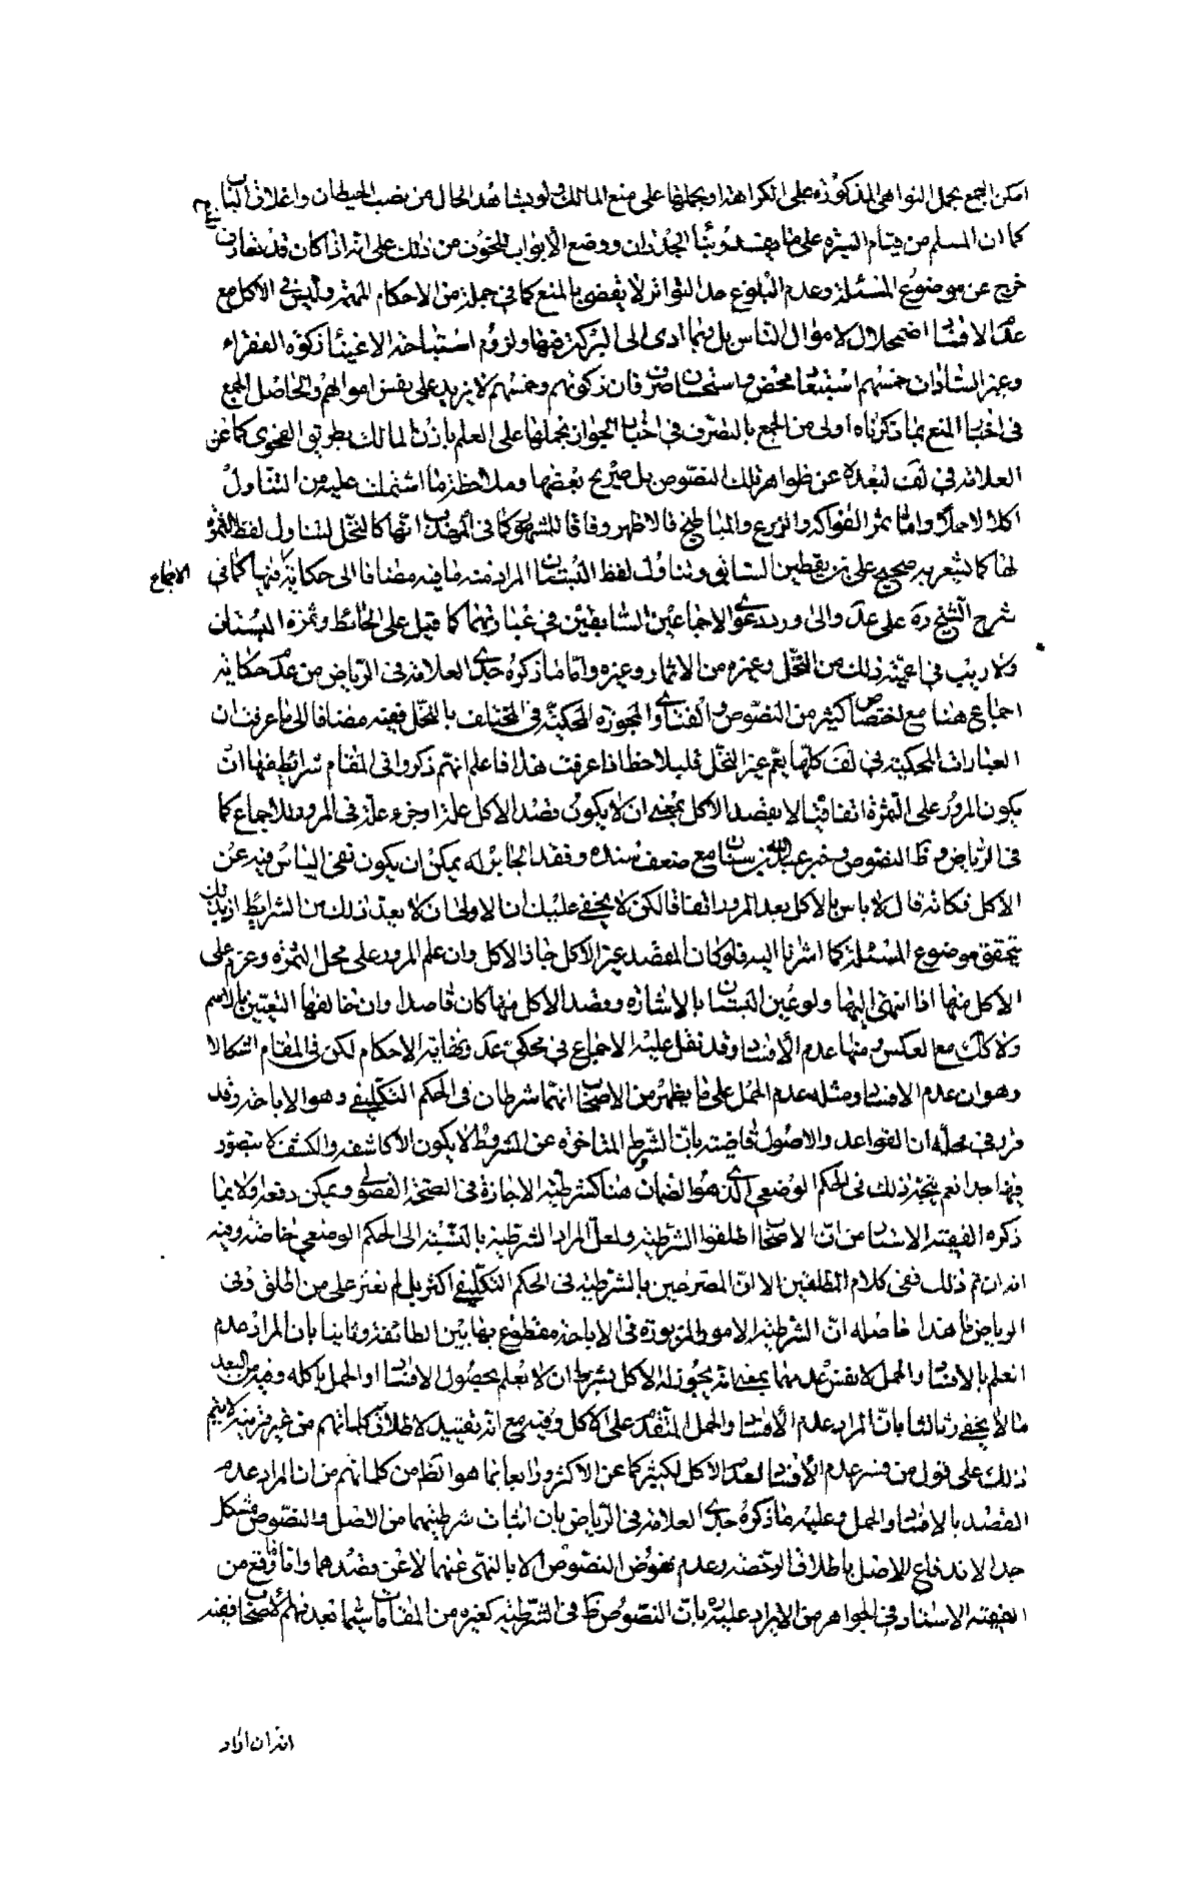 امكن الجمع بحمل النواهى المذكورة على الكراهة او بحملها على منع المالك ولو بشاهد الحال من نصب الحيطان واغلاق الباب
كما ان المسلم من قيام السيرة على ما يفسد وبناء الجدران ووضع الأبواب للتحوز من ذلك على انه اذا كان قد يقال
خرج عن موضوع المسئلة وعدم البلوغ حد التواتر لا يقضى بالمنع كما فى جملة من الاحكام المهمة وليس فى الاكل مع
عدم الافساد اضمحلال لاموال الناس بل ربما ادى الى البركة فيها ولزوم استباحة الاغنياء زكوة الفقراء
وغير السادات خمسهم استبعاد محض واستحسان صرف فان زكوتهم وخمسهم لا يزيد على نفس اموالهم والحاصل الجمع
فى اخبار المنع بما ذكرناه اولى من الجمع بالتصرف فى اخبار الجواز بحملها على العلم باذن المالك بطريق الفحوى كما عن
العلامة فى لف لبعده عن ظواهر تلك النصوص بل صريح بعضها وملاحظة ما اشتملت عليه من التناول
اكلا لا حملا واما ثمر الفواكه والزرع والمباطخ فالاظهر وفاقا للمشهور كما فى المهذب انها كالنخل لتناول لفظ الثمرة
لها كما يشعر به صحيح على بن يقطين السابق وتناول لفظ البستان المراد منه ما فيه مضافا الى حكاية الاجماع فيها كما فى
شرح الشيخ ره على عد والى ورود دعوى الاجماعين السابقين فى عبارتهما كما قيل على الحائط وثمرة البستان
ولا ريب فى اعمية ذلك من النخل وغيره من الاثمار وغيره واما ما ذكره جدى العلامة فى الرياض من عدم حكاية
اجماع هنا مع اختصاص كثير من النصوص والفتاوى المجوزة المحكية فى المختلف بالنخل ففيه مضافا الى ما عرفت ان
العبارات المحكية فى لف كلها يعم غير النخل فليلاحظ اذا عرفت هذا فاعلم انهم ذكروا فى المقام شرائط فمنها ان
يكون المرور على الثمرة اتفاقيا لا بقصد الاكل بمعنى ان لا يكون قصد الاكل علة او جزء علة فى المرور للاجماع كما
فى الرياض وظ النصوص وخبر عبد الله بن سنان مع ضعف سنده وفقد الجابر له يمكن ان يكون نفى الباس فيه عن
الاكل فكانه قال لا باس بالاكل بعد المرور اتفاقا لكن لا يخفى عليك ان الاولى ان لا يعد ذلك من الشرايط اذ بذلك
يتحقق موضوع المسئلة كما اشرنا اليه فلو كان المقصد غير الاكل جاز الاكل وان علم المرور على محل الثمرة وعزم على
الاكل منها اذا انتهى اليها ولو عين البستان بالاشارة وقصد الاكل منها كان قاصدا وان خالفها التعيين بالاسم
ولا كك مع العكس ومنها عدم الأفساد وقد نقل عليه الاجماع فى محكى عد ونهاية الاحكام لكن فى المقام اشكالا
وهو ان عدم الافساد ومثله عدم الحمل على ما يظهر من الاصحاب انهما شرطان فى الحكم التكليفى وهو الاباحة وقد
قرر فى محله ان القواعد والاصول قاضية بان الشرط المتاخرة عن المشروط لا يكون الا كاشفه والكشف لا يتصور
فيها جدا نعم يتجه ذلك فى الحكم الوضعى الذى هو الضمان هنا كشرطية الاجازة فى الصحة الفضولى ويمكن دفعه اولا بما
ذكره الفقيه الاستاد من ان الاصحاب اطلقوا الشرطية ولعل المراد الشرطية بالنسبة الى الحكم الوضعى خاصة وفيه
انه ان تم ذلك ففى كلام المطلقين الا ان المصرحين بالشرطية فى الحكم التكليفى اكثر بل لم نعثر على من اطلق وفى
الرياض ما هذا حاصله ان الشرطية الامور المزبورة فى الاباحة مقطوع بها بين الطائفة وثانيا بان المراد عدم
العلم بالافساد والحمل لا نفس عدمهما بمعنى انه يجوز له الاكل بشرط ان لا يعلم بحصول الافساد او الحمل باكله وفيه من البعد
ما لا يخفى وثالثا بان المراد عدم الأفساد والحمل المتقدم على الاكل وفيه مع انه تقييد لاطلاق كلماتهم من غير قرينة لا يتم
ذلك على قول من فسر عدم الأفساد بعدم الاكل كثيرا كما عن الاكثر ورابعا بما هو الظ من كلماتهم من ان المراد عدم
القصد بالافساد والحمل وعليه ما ذكره جدى العلامة فى الرياض بان اثبات شرطيتهما من الاصل والنصوص مشكل
جدا لاندفاع الاصل باطلاق الرخصة وعدم نهوض النصوص الا بالنهى عنهما لا عن قصدهما واما ما وقع من
الفقيه الاستاد فى الجواهر من الايراد عليه ره بان النصوص ظ فى الشرطية كغيره من المقامات سيما بعد فهم الاصحاب ففيه
انه ان اراد